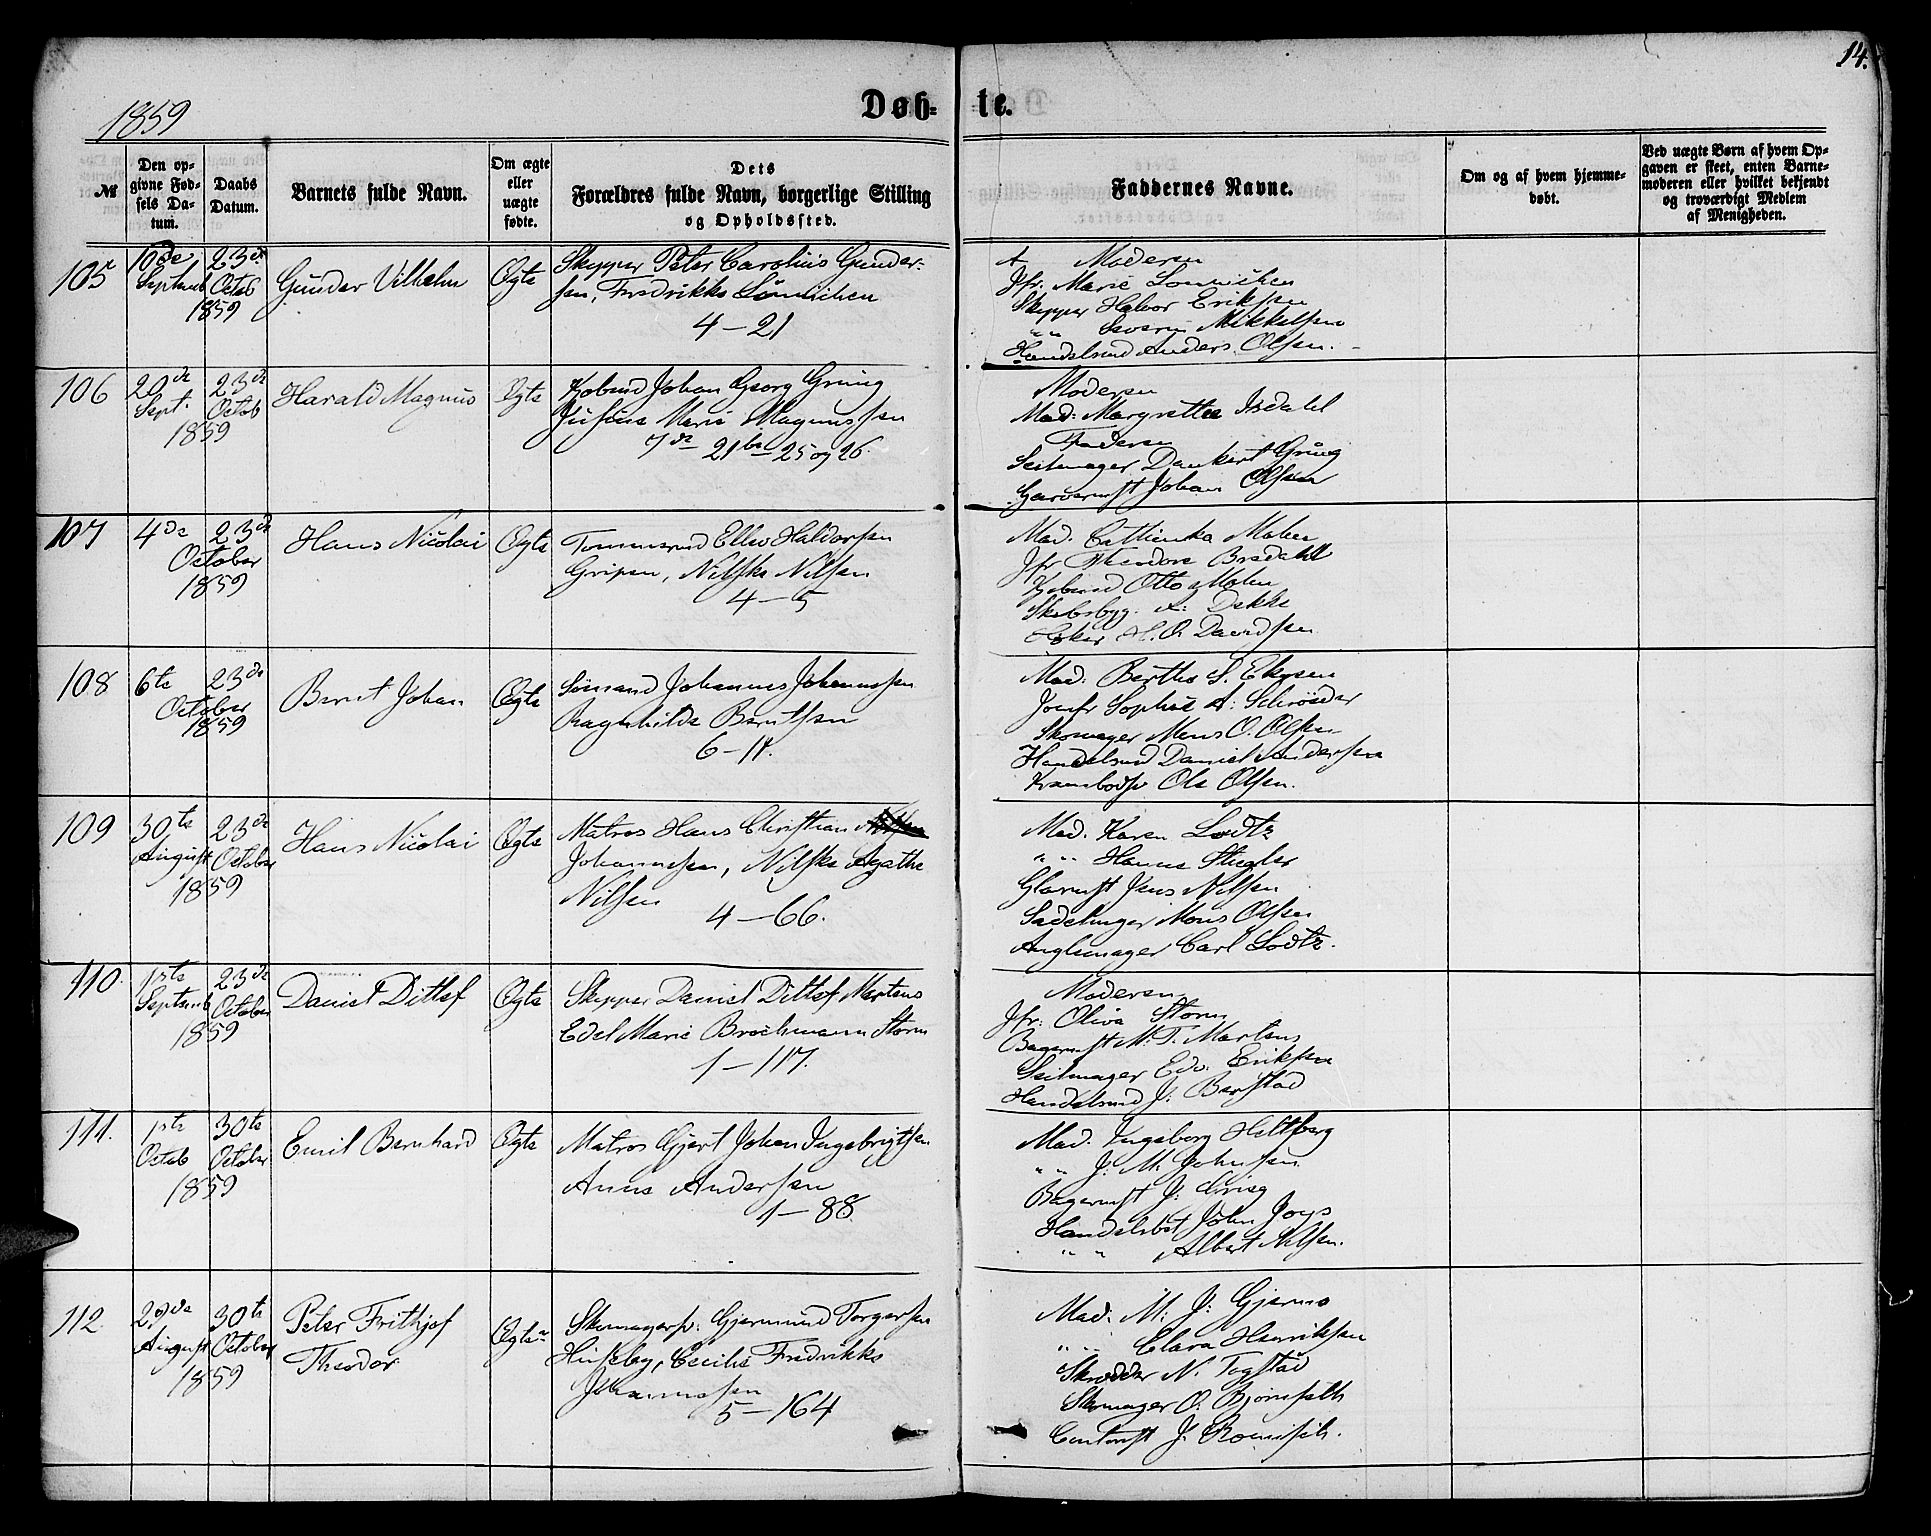 14.
1859
Døb-
te.
№
Den op-
givne Fød-
sels Da-
tum.
Daabs
Datum.
Barnets fulde Navn.
Om ægte
eller
uægte
fødte.
Dets
Forældres fulde Navn, borgerlige Stilling
og Opholdssted.
Faddernes Navne.
Om og af hvem hjemme-
døbt.
Ved uægte Børn af hvem Op-
gaven er skeet, enten Barne-
moderen eller hvilket bekjendt
og troværdigt Medlem
af Menigheden.
105
Septemb
23de
Octob
1859
Gunder Vilhelm
Ægte
Skipper Peter Carolius Gunder-
sen, Fredrikke
4-21
Moderen
Jfr. Marie
Skipper Halvor Eriksen
" " Severin Mikkelsen
Handelsmd Anders Olsen.
106
20de
Sept.
23de
Octob
1859
Harald Magnus
Ægte
Kjøbmd Johan Georg Grung
Marie Magnussen
7de 21de 25 og 26.
Moderen
Mad: Margrethe Isdahl
Faderen
Seilmager Dankert Grung
Garvermst Johan Olsen
107
4de
23de
October
1859
Hans Nicolai
Ægte
Tømmermd Ellev Haldorsen
Gripen, Nilske Nilsen
4-5
Mad. Cathinka Mohn
Jfr Theodora Bredahl
Kjøbmd Otto Mohn
Skibsbyg. A: Dekke
Høker H. O. Davidsen
108
6te
23de
October
1859
Bernt Johan
Ægte
Sømand Johannes Johannessen
Ragnhilde Berntsen
6-11.
Mad: Berthe S.
Jomfr Sophie A: Schrøder
Skomager Mons O. Olsen
Handelsmd Daniel Andersen
Ole Olsen.
109
30te
August
23de
October
1859
Hans Nicolai
Ægte
Matros Hans Christian
Johannessen, Nilske Agathe
Nilsen
4-66.
Mad. Karen Lodtz
" " Hanna Stegler
Glarmst Jens Nilsen
Sadelmager Mons Olsen
Carl Lodtz.
110.
1ste
Septemb
23de
October
1859
Daniel Ditlef
Ægte
Skipper Daniel Ditlef Martens
Edel Marie Brochmann Storm
1-117.
Moderen
Jfr: Oliva Storm
Bagermst M. T. Martens
Seilmager Edv. Eriksen
Handelsmd J: Barstad
111.
1ste
Octob
30te
October
1859
Emil Bernhard
Ægte
Matros Gjert Johan Ingebrigtsen
Anne Andersen
1-88.
Mad. Ingeborg Heltberg
" " J: M. Johnsen
Bagermst J: Grieg
Handelsbet John Joys
" " Albert Nilsen.
112.
August
30te
October
1859
Peter Frithjof
Theodor
Ægte
Skomagersv: Gjermund Torgersen
Huseby, Cecilie Fredrikke
Johannessen
5-164
Mad. M. J: Gjermo
" " Clara Henriksen
Skrædder N. Togstad
Skomager O. Bjørnseth
Contorist J.